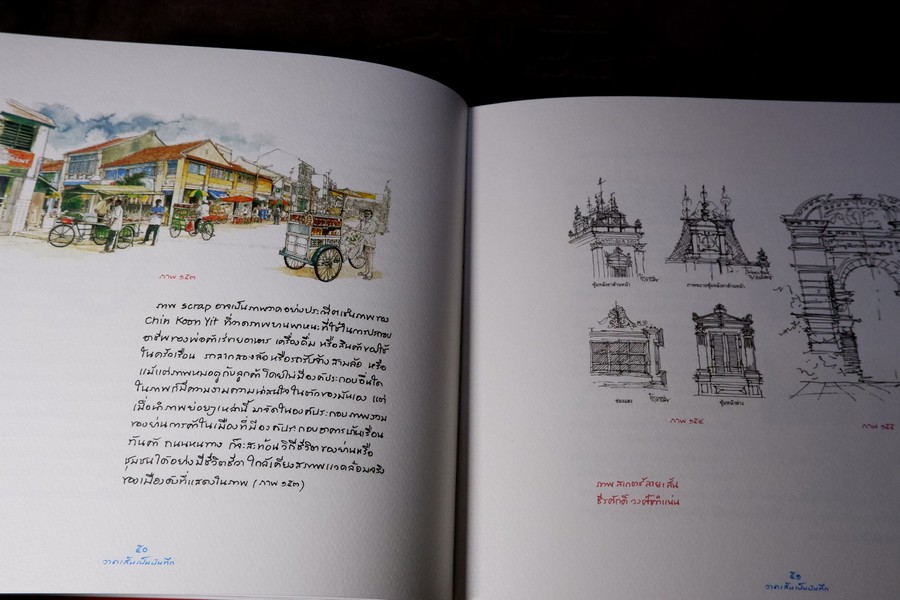 ภาพ ๑๕๓
ภาพ scrap อาจเป็นภาพวาดอย่างประณีตเช่นภาพของ
Chin Koon Yit ที่วาดภาพยานพาหนะที่ใช้ในการประกอบ
อาชีพของพ่อค้าเร่ขายอาหาร เครื่องดื่ม หรือสินค้าของใช้
ในครัวเรือน รถลากสองล้อหรือรถรับจ้างสามล้อ หรือ
แม้แต่ภาพหมอดูกับลูกค้า โดยไม่มีองค์ประกอบอื่นใด
ในภาพก็มีความงามความน่าสนใจในตัวของมันเอง แต่
เมื่อนำภาพย่อยๆเหล่านี้ มาจัดในองค์ประกอบภาพรวม
ของย่านการค้าในเมืองที่มีองค์ประกอบอาคารบ้านเรือน
ร้านค้า ถนนหนทาง ก็จะสะท้อนวิถีชีวิตของย่านหรือ
ชุมชนได้อย่างมีชีวิตชีวา ใกล้เคียงสภาพแวดล้อมจริง
ของเมืองดังที่แสดงในภาพ (ภาพ ๑๕๓)
๕๐
วาดเส้นเป็นบันทึก
ซุ้มหลังคาด้านหน้า
ภาพขยายซุ้มหลังคาด้านหน้า
ช่องแสง
ซุ้มหน้าต่าง
ภาพ ๑๕๔
ภาพ ๑๕๕
ภาพ สเกตช์ลายเส้น
ธีรศักดิ์ วงศ์คำแน่น
๕๑
วาดเส้นเป็นบันทึก